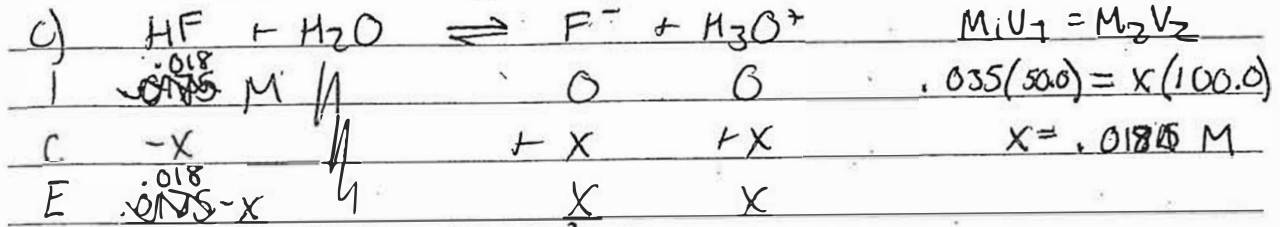 c) HF + H₂O ⇌ F⁻ + H₃O⁺ M₁V₁ = M₂V₂
I .018 M 0 0 .035(50.0) = x(100.0)
C -x + x +x x = .018 M
E .018 -x x x